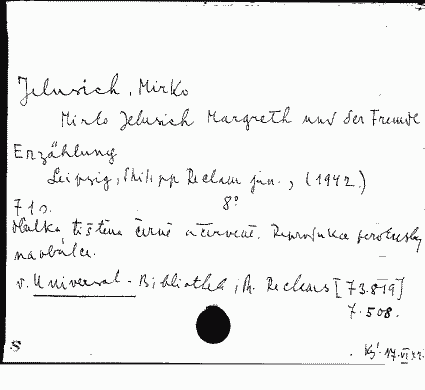 Jelusich, Mirko
Mirko Jelusich Margreth und der Fremde
Erzählung
Leipzig, Philipp Reclam jun., (1942.)
71 s. 8°
Obálka tištěna černě a červeně. Reprodukce perokresby
na obálce.
v. Universal-Bibliothek, Ph. Reclams [73.819]
7.508.
S
17.VI